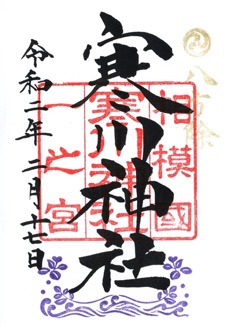 八方除
寒川神社
相模國
寒川神社
一之宮
令和二年二月十七日